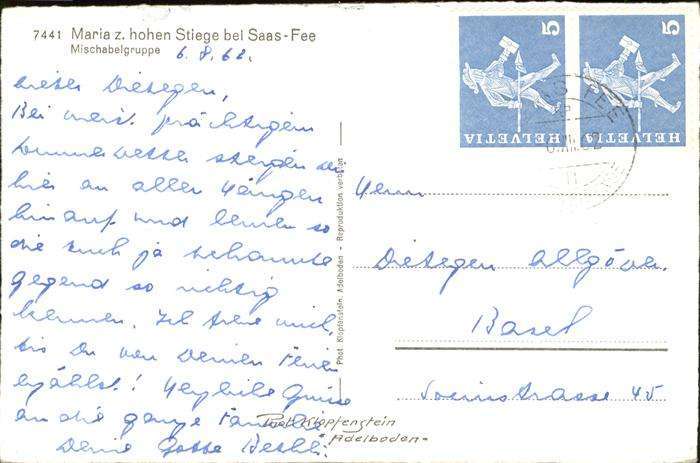 7441 Maria z. hohen Stiege bei Saas-Fee
Mischabelgruppe
6.8.62.
Lieber Dietegen,
Bei meist prächtigem
Sommerwetter steigen wir
hier an allen Hängen
hinauf und lernen so
die Euch ja bekannte
Gegend so richtig
kennen. Ich freue mich,
bis Du von Deinen Ferien
erzählst! Herzliche Grüsse
an die ganze Familie
Deine Gotte
Phot. Klopfenstein, Adelboden - Reproduktion verboten
5
HELVETIA
5
HELVETIA
SAAS-FEE
Herrn
Dietegen Allgöwer
Basel
45
Phot. Klopfenstein
Adelboden